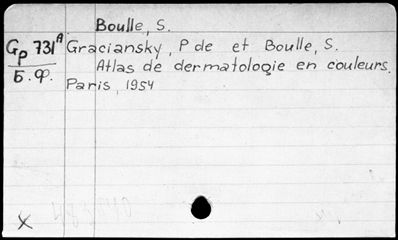 Boulle, S.
Gp 731A Graciansky, P de et Boulle, S.
Б. Ф. Atlas de dermatologie en couleurs.
Paris, 1954
X